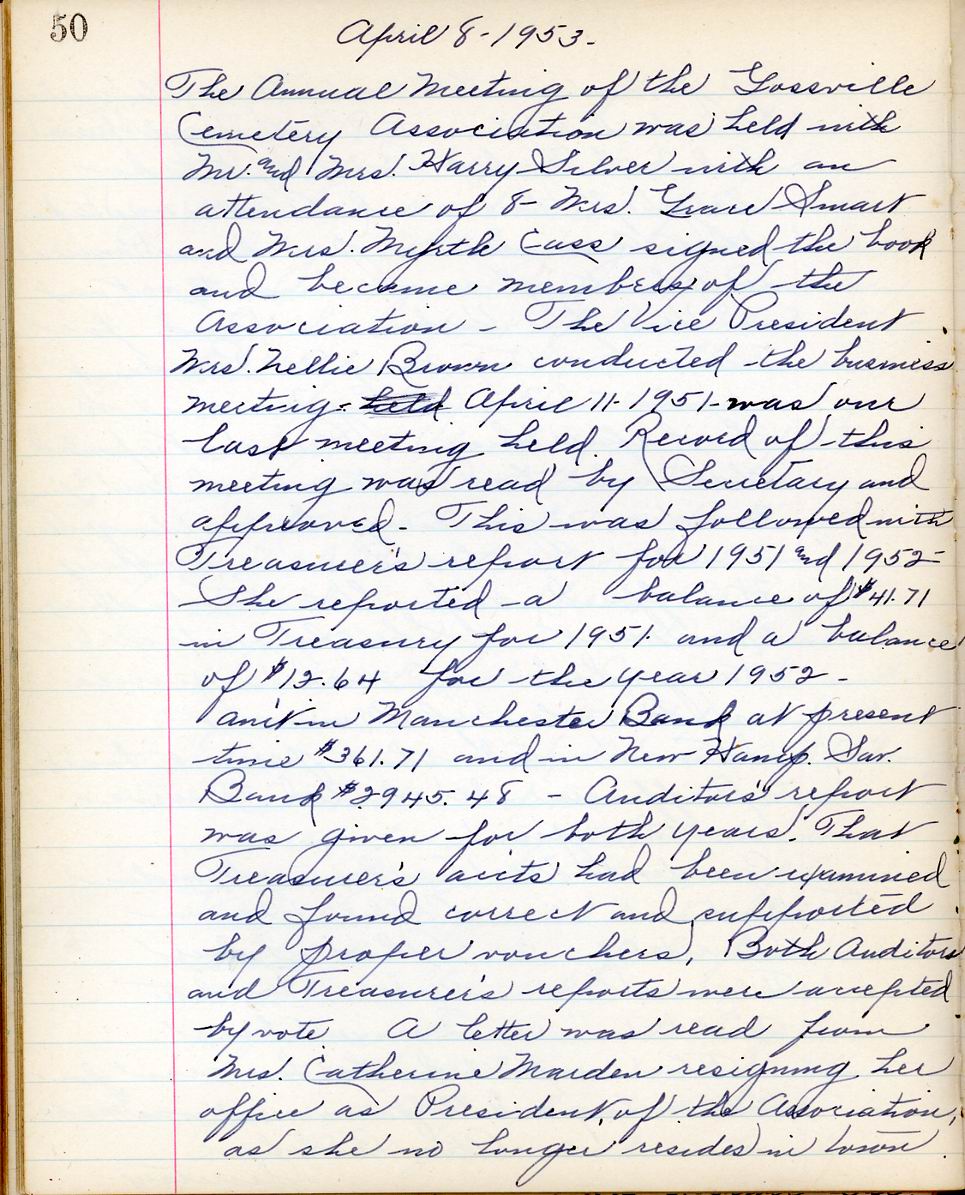 50
April 8-1953-
The Annual Meeting of the Gossville
Cemetery Association was held with
Mr. and Mrs. Harry Silver with an
attendance of 8- Mrs. Grace Smart
and Mrs. Myrtle Cass signed the book
and became members of the
Association - The Vice President
Mrs. Nellie Brown conducted the business
meeting. held April 11-1951- was our
last meeting held. Record of this
meeting was read by Secretary and
approved- This was followed with
Treasurer's report for 1951 and 1952-
She reported -a balance of $41.71
in Treasury for 1951. and a balance
of $12.64 for the year 1952-
am't in Manchester Bank at present
time $361.71 and in New Hamp. Sav.
Bank $2945.48 - Auditors' report
was given for both years. That
Treasurer's accts had been examined
and found correct and supported
by proper vouchers, Both Auditors
and Treasurer's reports were accepted
by vote A letter was read from
Mrs. Catherine Marden resigning her
office as President, of the Association,
as she no longer resides in town